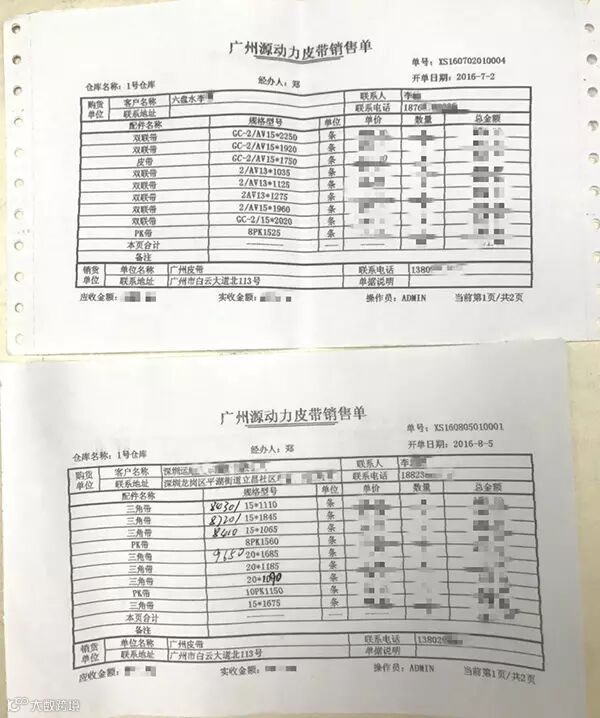 广州源动力皮带销售单
单号：XS160702010004
仓库名称：1号仓库 经办人：郑 开单日期：2016-7-2
购货单位 客户名称 六盘水李 联系人 李
联系地址 联系电话 1876
配件名称 规格型号 单位 单价 数量 总金额
双联带 GC-2/AV15*2250 条
双联带 GC-2/AV15*1920 条
皮带 GC-2/AV15*1750 条
双联带 2/AV13*1035 条
双联带 2/AV13*1125 条
双联带 2AV13*1275 条
双联带 2/AV15*1960 条
双联带 GC-2/15*2020 条
PK带 8PK1525 条
本页合计
备注
销货单位 单位名称 广州皮带 联系电话 1380
联系地址 广州市白云大道北113号 单据说明
应收金额： 实收金额： 操作员：ADMIN 当前第1页/共2页
广州源动力皮带销售单
单号：XS160805010001
仓库名称：1号仓库 经办人：郑 开单日期：2016-8-5
购货单位 客户名称 深圳运 联系人 李
联系地址 深圳龙岗区平湖街道立昌社区 联系电话 18823
配件名称 规格型号 单位 单价 数量 总金额
三角带 8430/ 15*1110 条
三角带 8720/ 15*1845 条
三角带 8410 15*1065 条
PK带 8PK1560 条
三角带 9650 20*1685 条
三角带 20*1185 条
三角带 20*1090 条
PK带 10PK1150 条
三角带 15*1675 条
本页合计
备注
销货单位 单位名称 广州皮带 联系电话 13802
联系地址 广州市白云大道北113号 单据说明
应收金额： 实收金额： 操作员：ADMIN 当前第1页/共2页
大数跨境